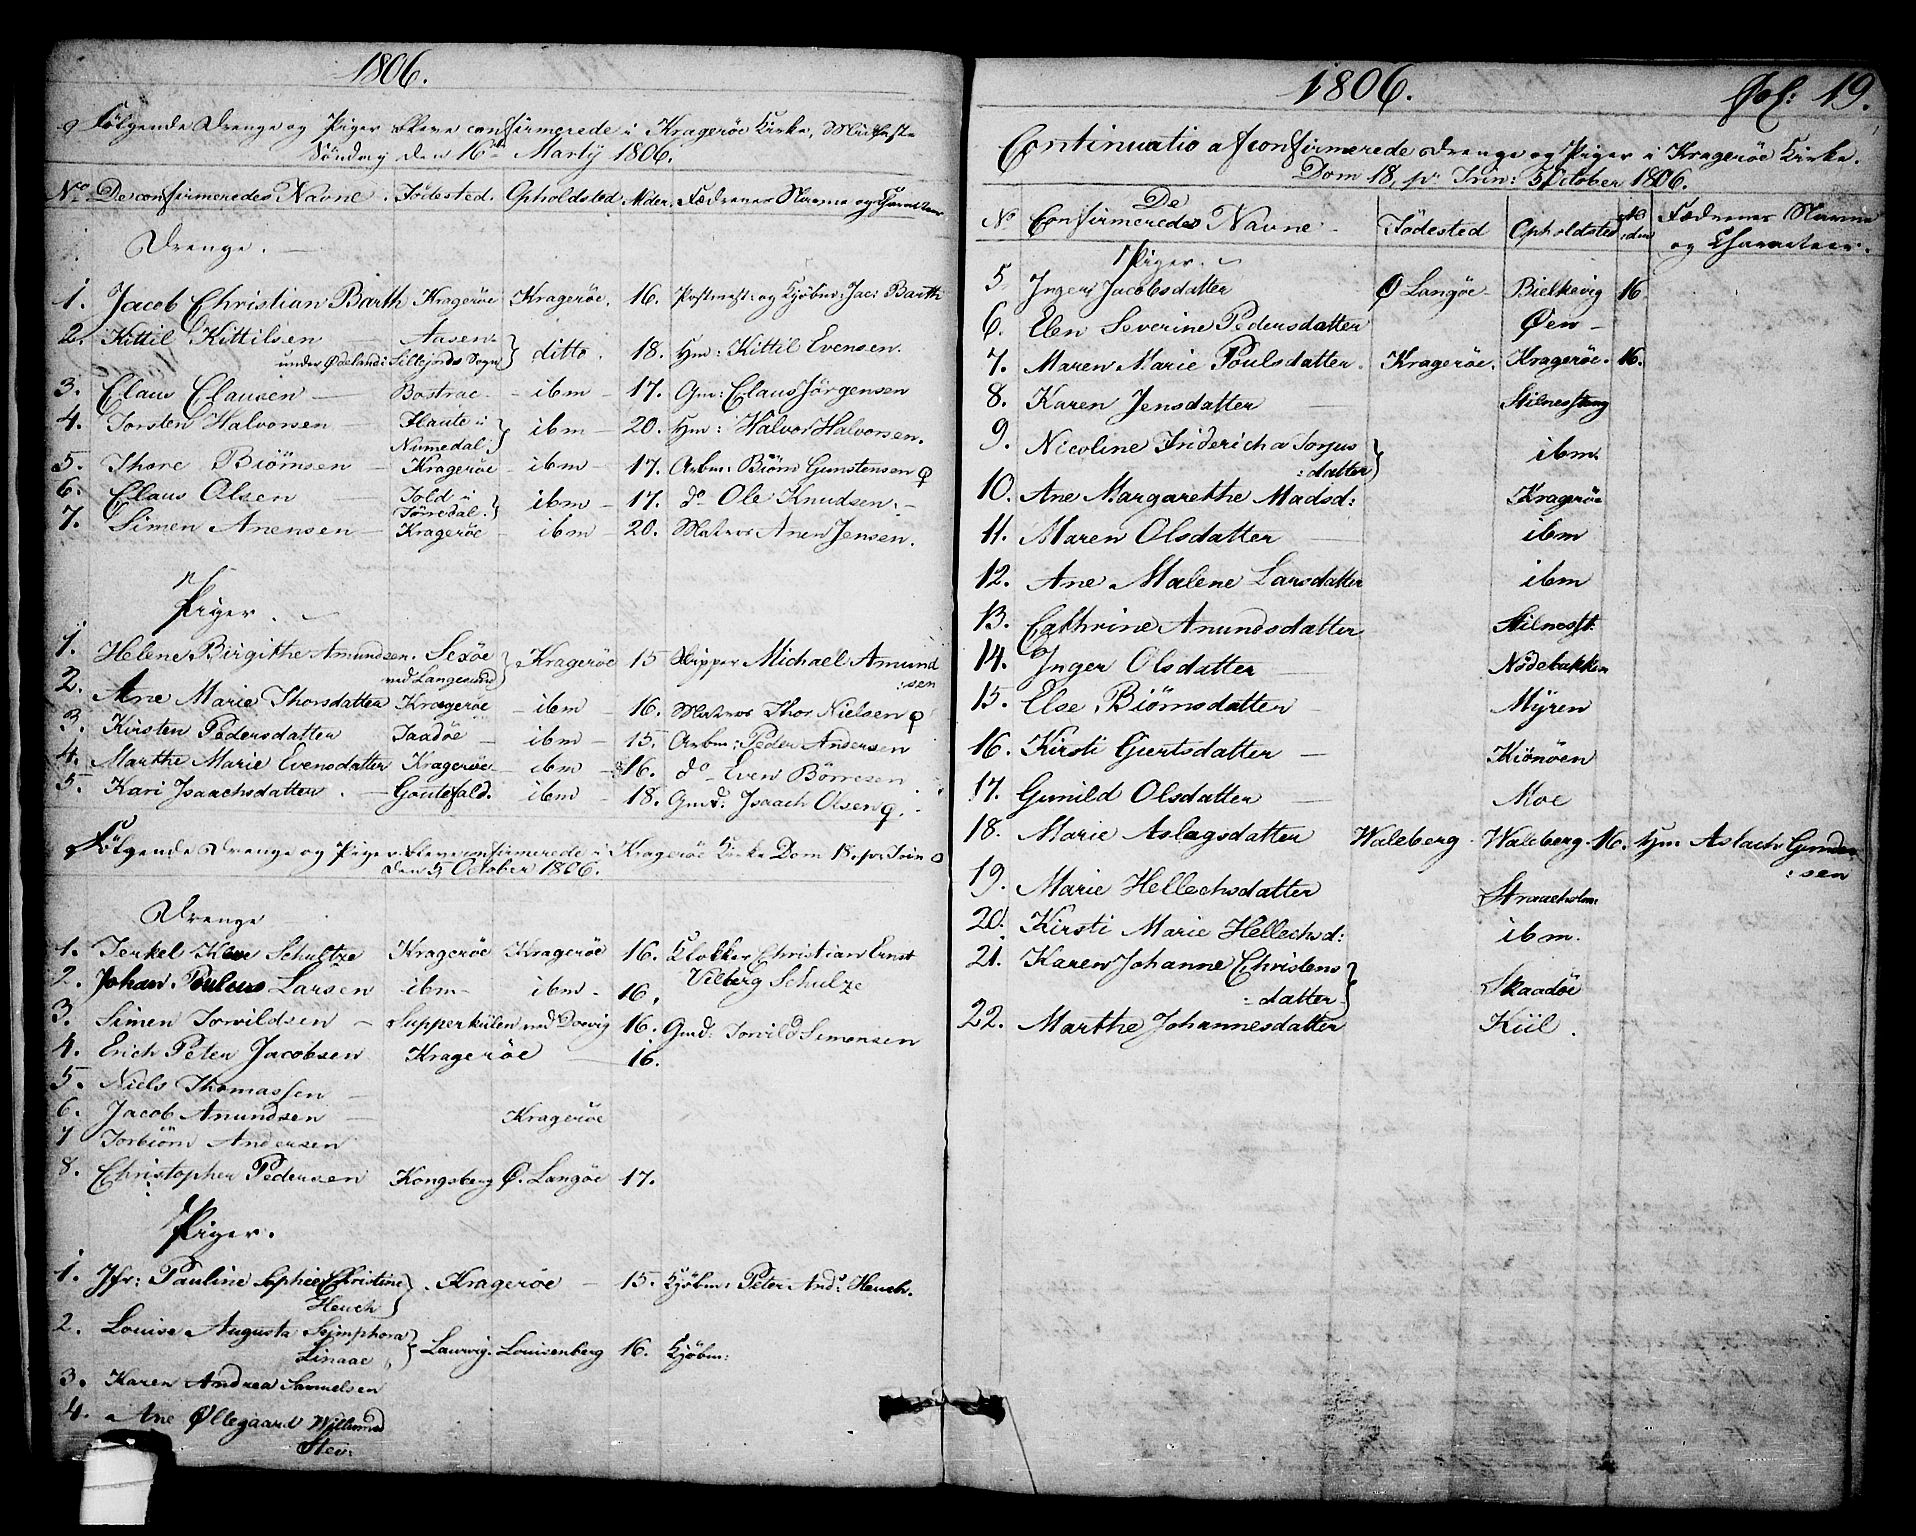 1806.
Følgende Drenge og Piger bleve confirmerede i Kragerøe Kirke, Midfaste
Søndag den 16de Martij 1806.
No De confirmeredes Navne. Fødested. Opholdsted Alder. Fædrenes Navne og Charakteer
Drenge.
1. Jacob Christian Barth Kragerøe Kragerøe. 16. Postmest: og Kjøbm: Jac: Barth
2. Kittil Kittilsen Aasen
under Ødeland i Sillejords Sogn ditto. 18. Hm: Kittil Evensen.
3. Claus Clausen Bostrac ibm 17. Gm: Claus Jörgensen
4. Torsten Halvorsen Flaute i
Numedal ibm 20. Hm: Halvor Halvorsen.
5. Thore Biörnsen Kragerøe ibm 17. Arbm: Biörn Gunstensen
6. Claus Olsen Told i
Tørredal. ibm 17. do Ole Knudsen.
7. Simen Anensen Kragerøe ibm 20. Matros Anen Jensen.
Piger.
1. Helene Birgithe Amundsen. Sexöe
ved Langesund Kragerøe 15 Skipper Michael Amund
:sen
2. Ane Marie Thorsdatter Kragerøe ibm 16. Matros Thor Nielsen
3. Kirsten Pedersdatter Taadöe ibm 15. Arbm: Peder Andersen
4. Marthe Marie Evensdatter Kragerøe ibm 16. do Even Börresen
5. Kari Isaachsdatter Goutefald. ibm 18. Gmd: Isaach Olsen
Følgende Drenge og Piger bleve confirmerede i Kragerøe Kirke Dom 18. p: Trin
den 5 October 1806.
Drenge
1. Terkel Schultze Kragerøe Kragerøe 16. Klokker Christian Ernst
Vilberg Schulze
2. Johan Poulus Larsen ibm ibm 16.
3. Simen Torvildsen Supperkülen ved Doevig 16. Gmd: Torvild Simonsen
4. Erich Peter Jacobsen Kragerøe 16.
5. Niels Thomassen
6. Jacob Anundsen Kragerøe
7 Torbiörn Andersen
8. Christopher Pedersen Kongsberg Ø. Langöe 17.
Piger.
1. Jfr: Pauline Sophie Christine
Heuch Kragerøe 15. Kjøbm: Peter And: Heuch.
2. Louise Augusta Simphora
Linaae Laurvig. Louisenberg 16. Kjøbm:
3. Karen Andrea Samuelsen
4. Ane Øllegaard
1806. Fol: 19.
Continuatio af confirmerede Drenge og Piger i Kragerøe Kirke.
Dom 18, p. Trin: 5 October 1806.
No De Confirmeredes Navne Fødested Opholdsted Alder Fædrenes Navne
og Charakteer.
Piger.
5 Inger Jacobsdatter Ø Langöe Bielkevig 16
6. Elen Severine Pedersdatter Øen
7. Maren Marie Poulsdatter. Kragerøe. Kragerøe. 16.
8. Karen Jensdatter Stilnesstang
9. Nicoline Friderich a Torjus
:datter ibm
10. Ane Margarethe Madsd: Kragerøe
11. Maren Olsdatter ibm
12. Ane Malene Larsdatter ibm
13. Cathrine Anundsdatter Stilnesst:
14. Inger Olsdatter Nödebakken
15. Else Biörnsdatter Myren
16. Kirsti Giertsdatter Kiönöen
17. Gunild Olsdatter Moe
18. Marie Aslagsdatter Waleberg Waleberg. 16. Hm Aslach Gunder
:sen
19. Marie Hellechsdatter Straaeholm:
20. Kirsti Marie Hellechsd: ibm.
21. Karen Johanne Christens
:datter Skaadöe
22. Marthe Johannesdatter Kiil.